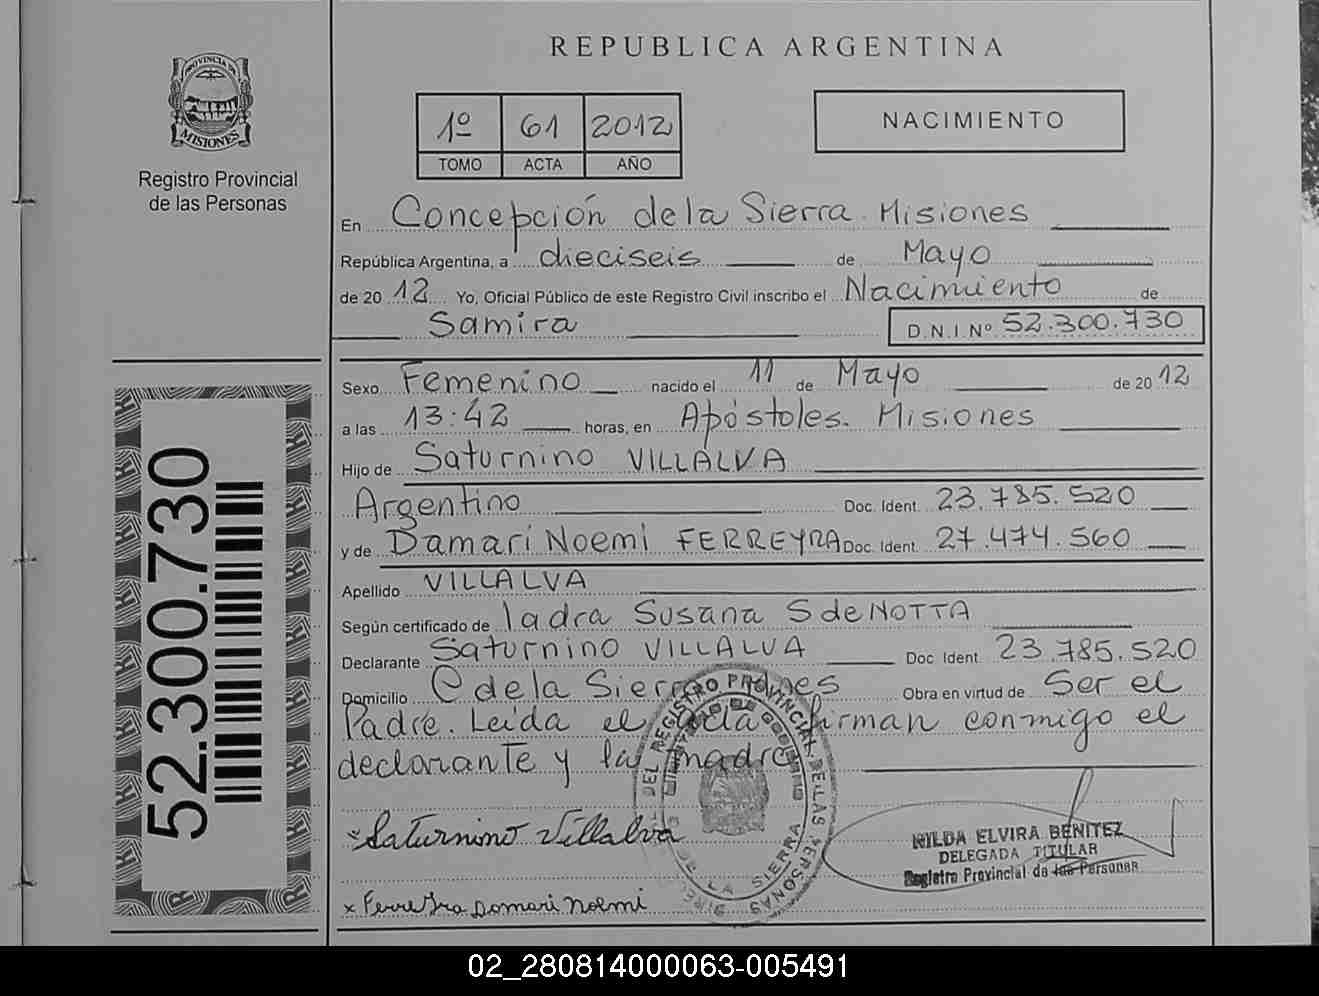 REPUBLICA ARGENTINA
PROVINCIA DE
MISIONES
Registro Provincial
de las Personas
1º 61 2012
TOMO ACTA AÑO
NACIMIENTO
En Concepción de la Sierra. Misiones
República Argentina, a dieciseis de Mayo
de 2012 Yo, Oficial Público de este Registro Civil inscribo el Nacimiento de
Samira D.N.I.Nº 52.300.730
Sexo Femenino nacido el 11 de Mayo de 2012
a las 13:42 horas, en Apóstoles. Misiones
Hijo de Saturnino VILLALVA
Argentino Doc. Ident. 23.785.520
y de Damari Noemi FERREYRA Doc. Ident. 27.474.560
Apellido VILLALVA
Según certificado de ladra Susana S de NOTTA
Declarante Saturnino VILLALVA Doc. Ident. 23.785.520
Domicilio C de la Sierra Mnes Obra en virtud de Ser el
Padre. Leida el acta firman conmigo el
declarante y la madre
52.300.730
DEL REGISTRO PROVINCIAL DE LAS PERSONAS
DE LA SIERRA
Saturnino Villalva
HILDA ELVIRA BENITEZ
DELEGADA TITULAR
Registro Provincial de las Personas
x Ferreyra Damari Noemi
02_280814000063-005491